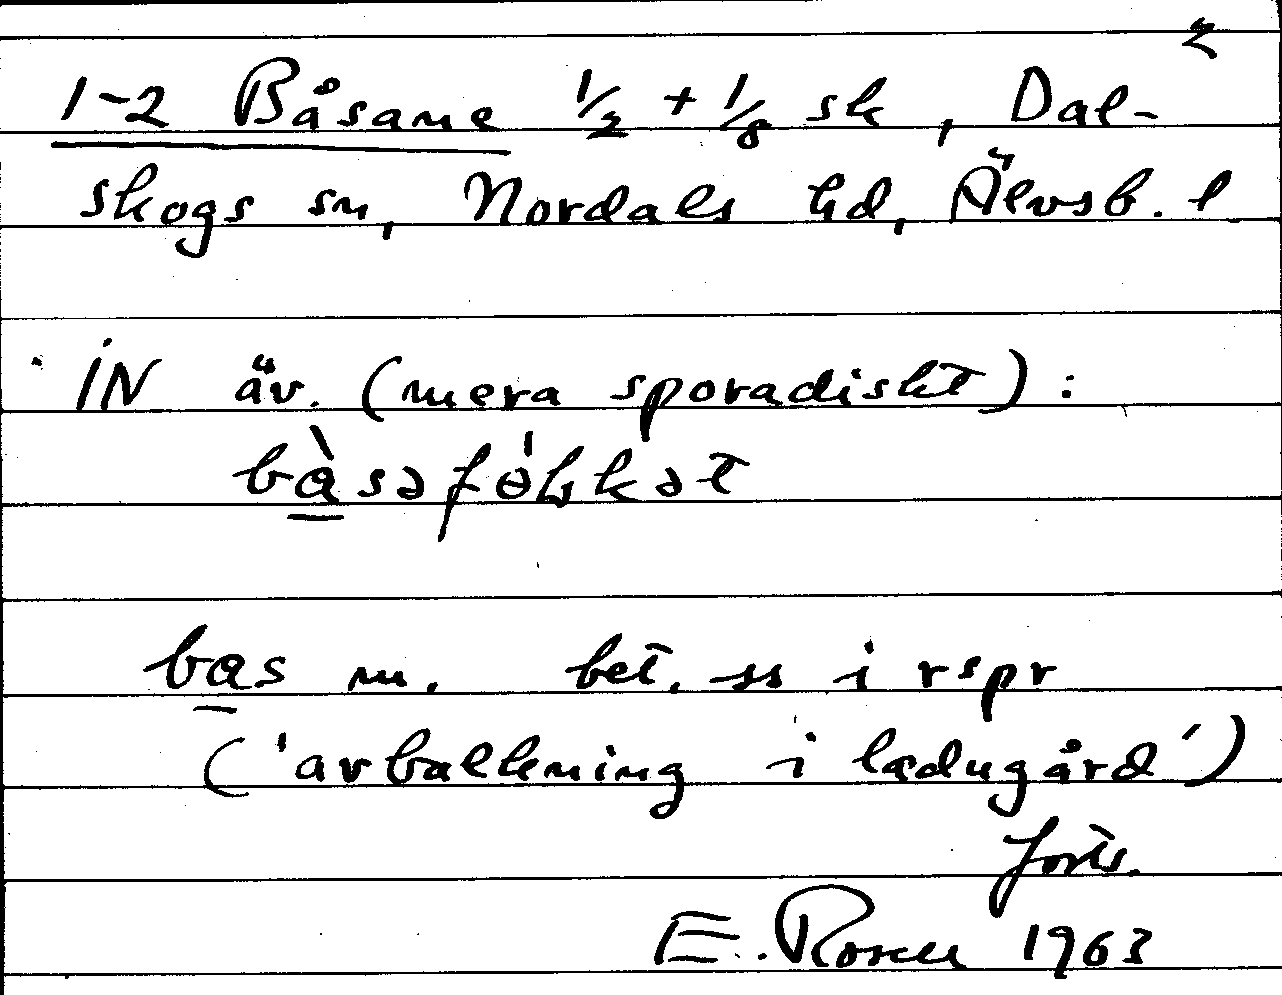 2
1-2 Båsane 1/2 + 1/8 sk, Dal-
skogs sn, Nordals hd, Älvsb. l
IN äv. (mera sporadiskt):
bas m. bet. ss i rspr
('avbalkning i ladugård')
forts.
E. Rosell 1963